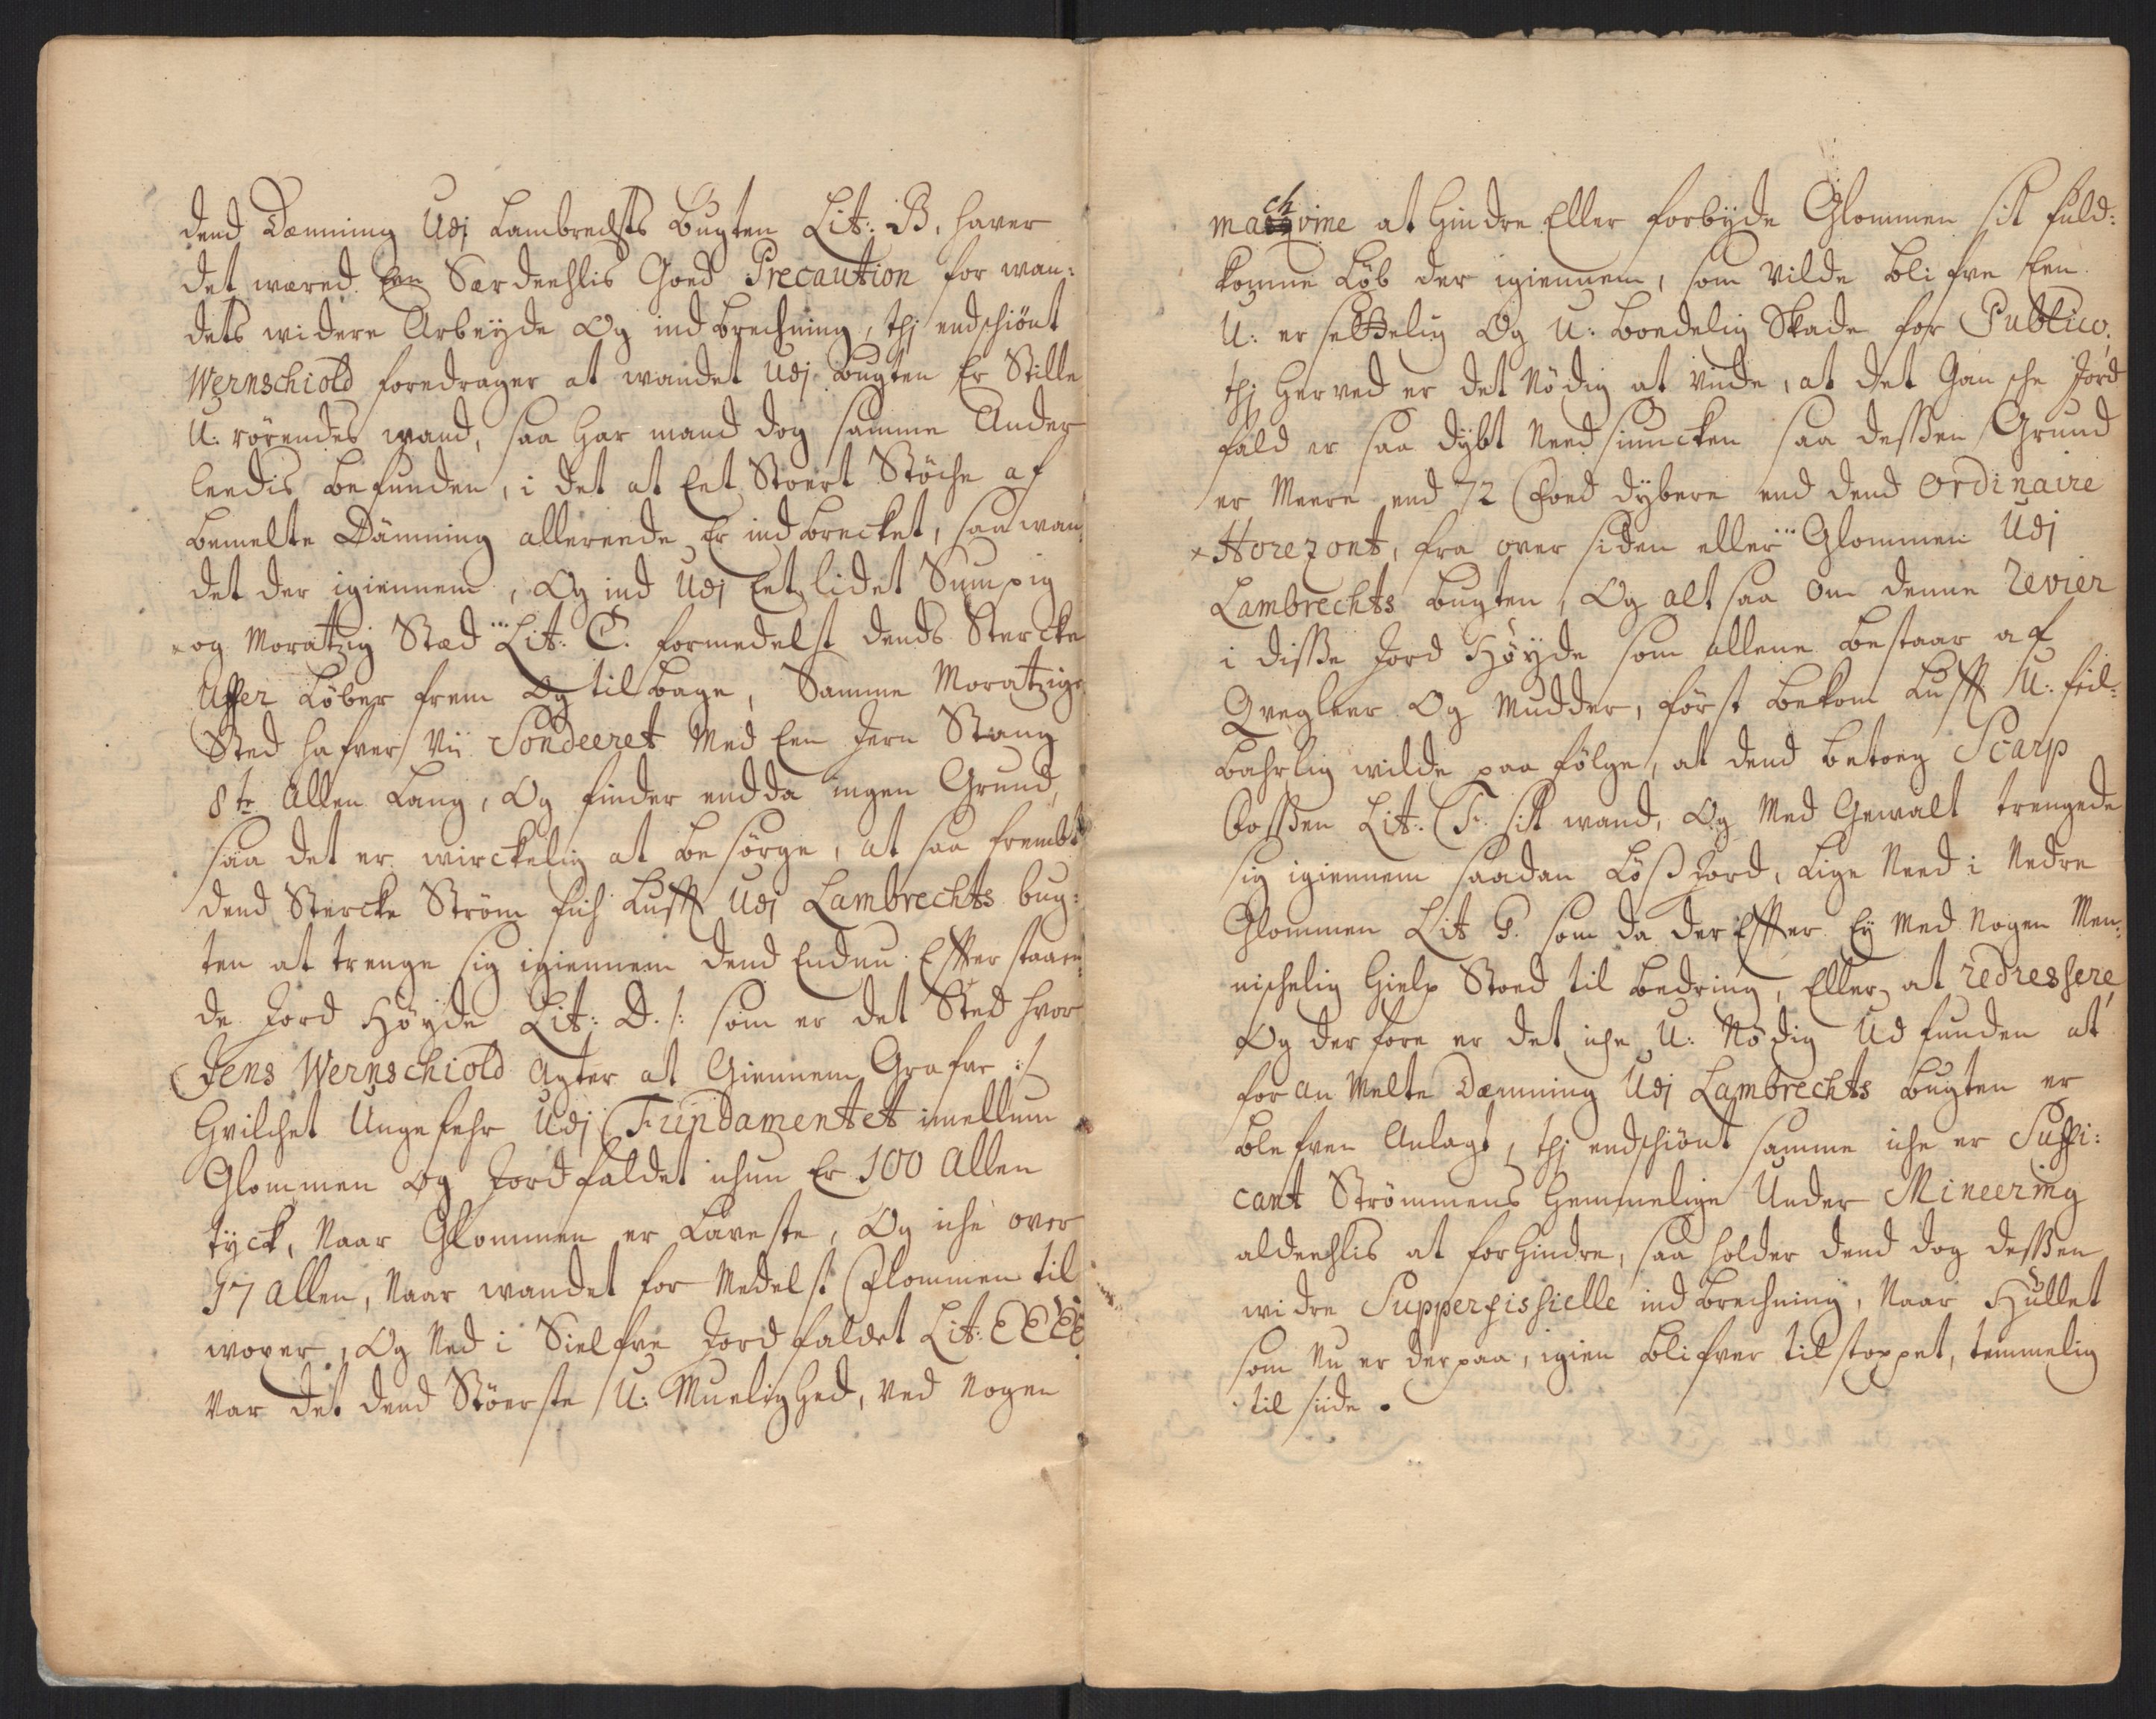 dend Dæmning Udj Lambrechts Bugten Lit: B. haver
det wæred een Særdeehlis Goed Precaution for wan:
dets widere Arbeyde Og indbrechning, thj endschiönt
Wernschiold foredrager at wandet Udj Bugten Er Stille
U: rörendes wand, saa har mand dog samme Ander
leedis befunden, i det at Eet Stoert Stöche af
bemelte Dämning allereede Er indbrecket, saa wan
det der igiennem, Og ind Udj Eet lidet Sumpig
og Moratzig Stæd Lit: C. formedelst dends Stercke
löber frem Og tilbage, Samme Moratzige
Sted hafver Vii Sondeeret Med Een Jern Stang
8te Allen Lang, Og finder endda ingen Grund,
saa det er wirckelig at besörge, at saa frembt
dend Stercke Ström fich Lufft Udj Lambrechts bug:
ten at trenge sig igiennem dend Endnu Effterstaaen
de Jord Höyde Lit: D. /: som er det Sted hvor
Jens Wernschiold Agter at Giennem Grafve :/
Hvilchet Ungefehr Udj Fundamentet imellum
Glommen og Jordfaldet ichun Er 100 Allen
tyck, Naar Glommen er Laveste, Og iche over
97 Allen, Naar wandet for Medelst Flommen til
woxer, Og Ned i Sielfve Jordfaldet Lit: EEEE
Var det dend Störste U: Muelighed, ved Nogen
machine at hindre Eller forbyde Glommen sit fuld:
komne Löb der igiennem, som Vilde blifve Een
U: ersettelig Og U: boedelig Skade for Publico,
thj herved er det Nödig at Viide, at det Gansche Jord
fald er saa dybt Need siuncken saa dessen Grund
er Meere end 72 Foed dybere end dend Ordinaire
Horezont, fra over siden eller Glommen Udj
Lambrechts Bugten, Og alt saa Om denne Revier
i disse Jord Höyde som allene bestaar af
Qvegleer Og Mudder, först bekom Lufft U: feil:
bahrlig wilde paa fölge, at dend betoeg Scarp
Fossen Lit: F. sit wand, Og Med Gewalt trengede
sig igiennem saadan Lös Jord, Lige Need i Nedre
Glommen Lit G. som da der Effter Ey Med Nogen Men:
nischelig Hielp Stoed til bedring, Eller at redressere,
Og derfore er det iche U: Nödig Udfunden at
for An Melte Dæmning Udj Lambrechts Bugten er
blefven Anlagt, thj endschiönt samme iche er Suffi:
cant Strömmens Hemmelige Under Mineering
aldeehlis at forhindre, saa holder dend dog dessen
widre Supperfissielle indbrechning, Naar Hullet
som Nu er derpaa, igien blifver tilstoppet, temmelig
til siide.